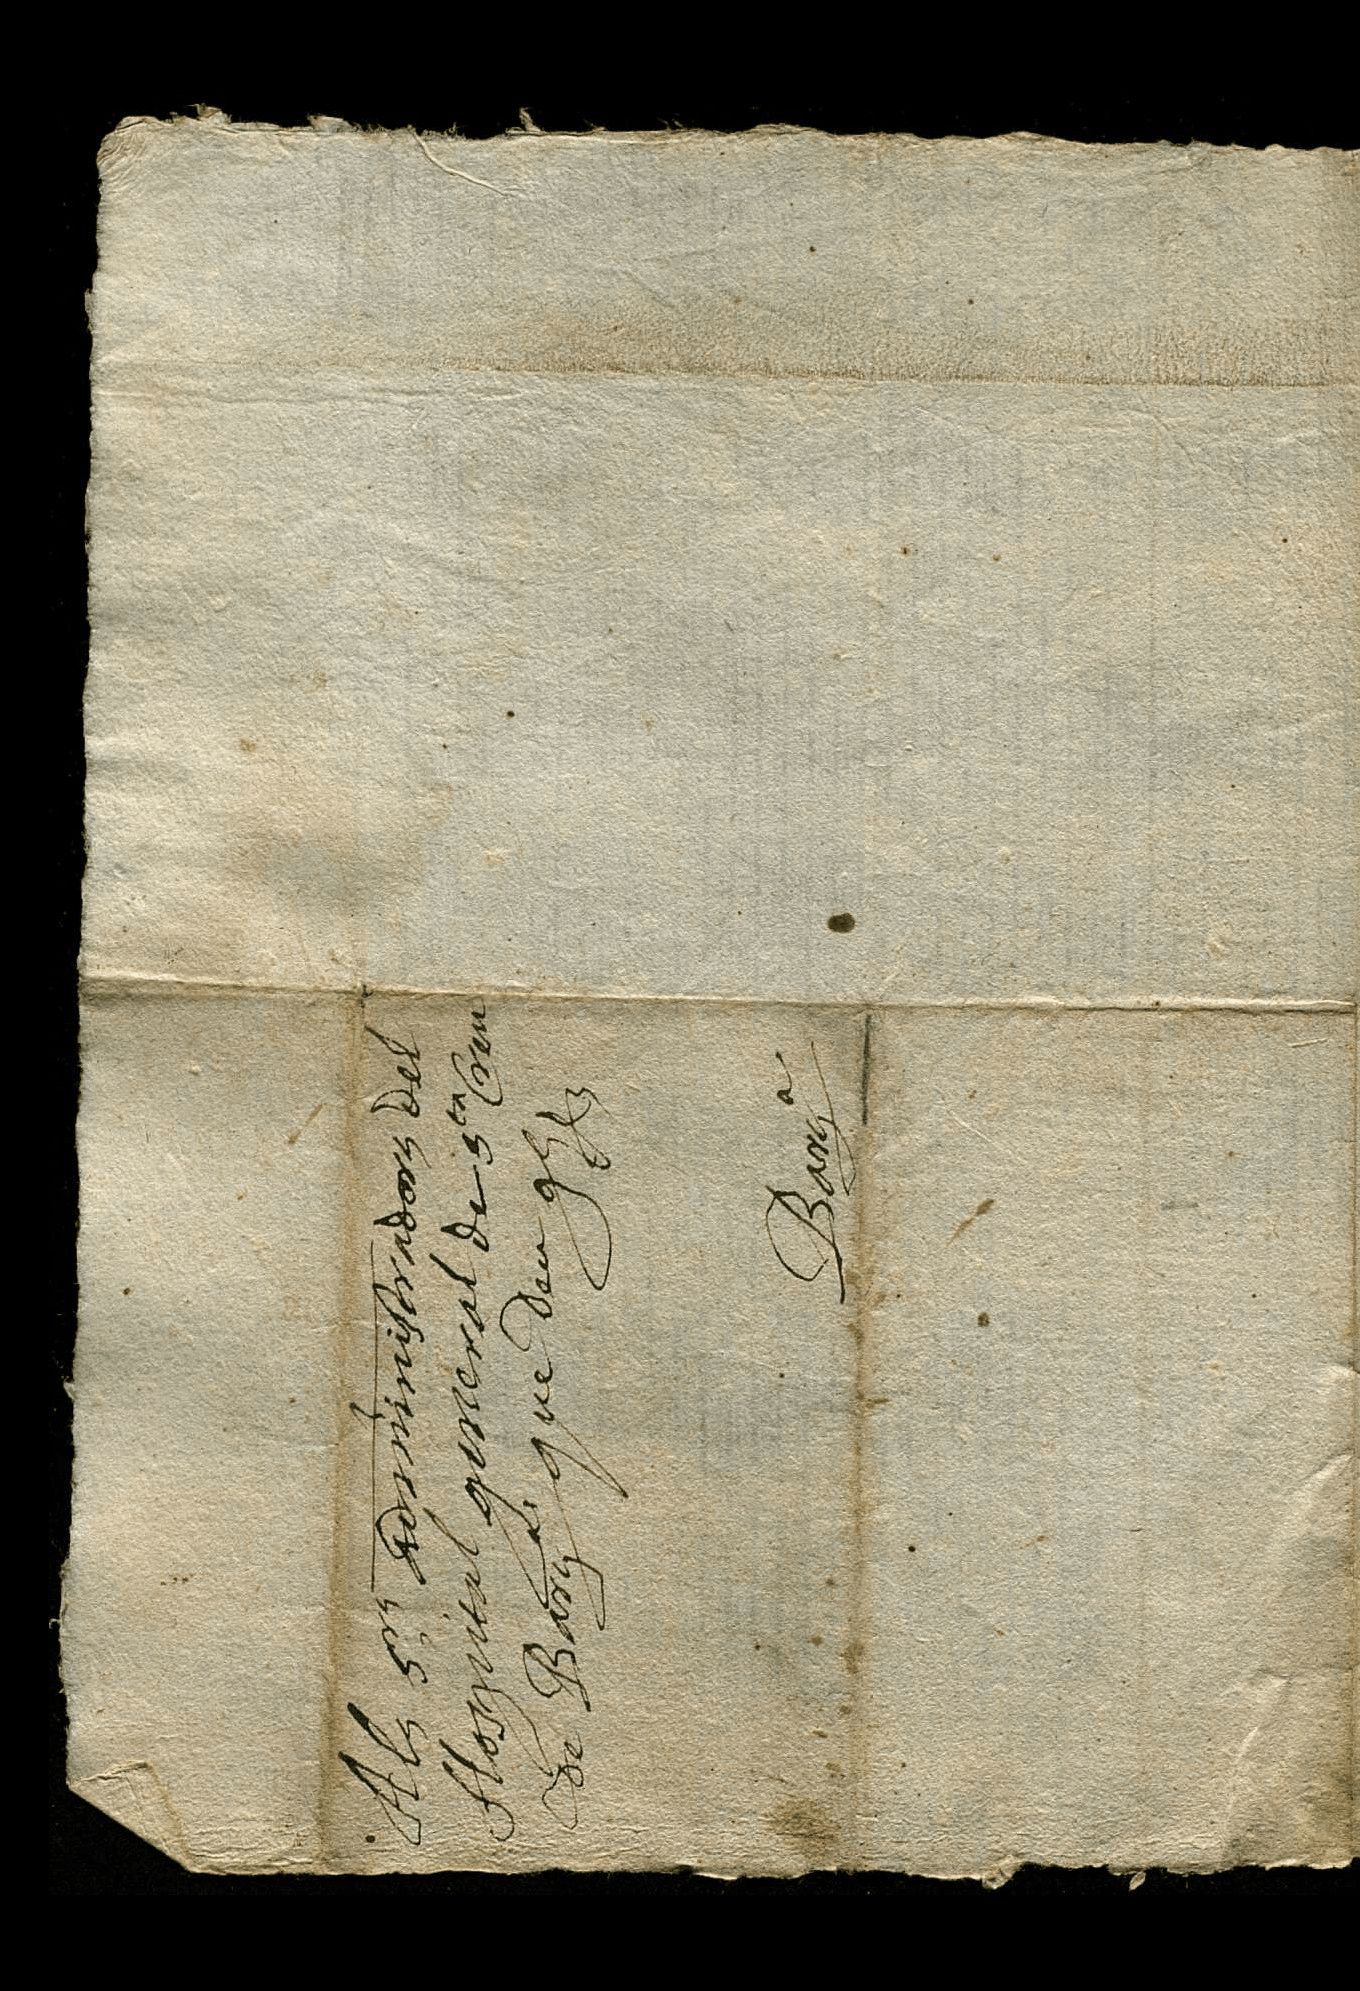 Als S.rs Administradors del
Hospital general de S.ta Creu
de Barn.a, que Deu g.de
Barn.a